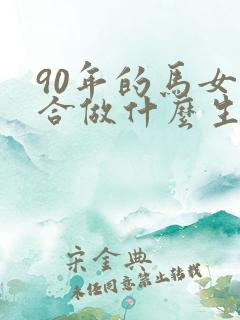 90年的馬女
合做什麼生
宋金典
未經同意禁止轉載